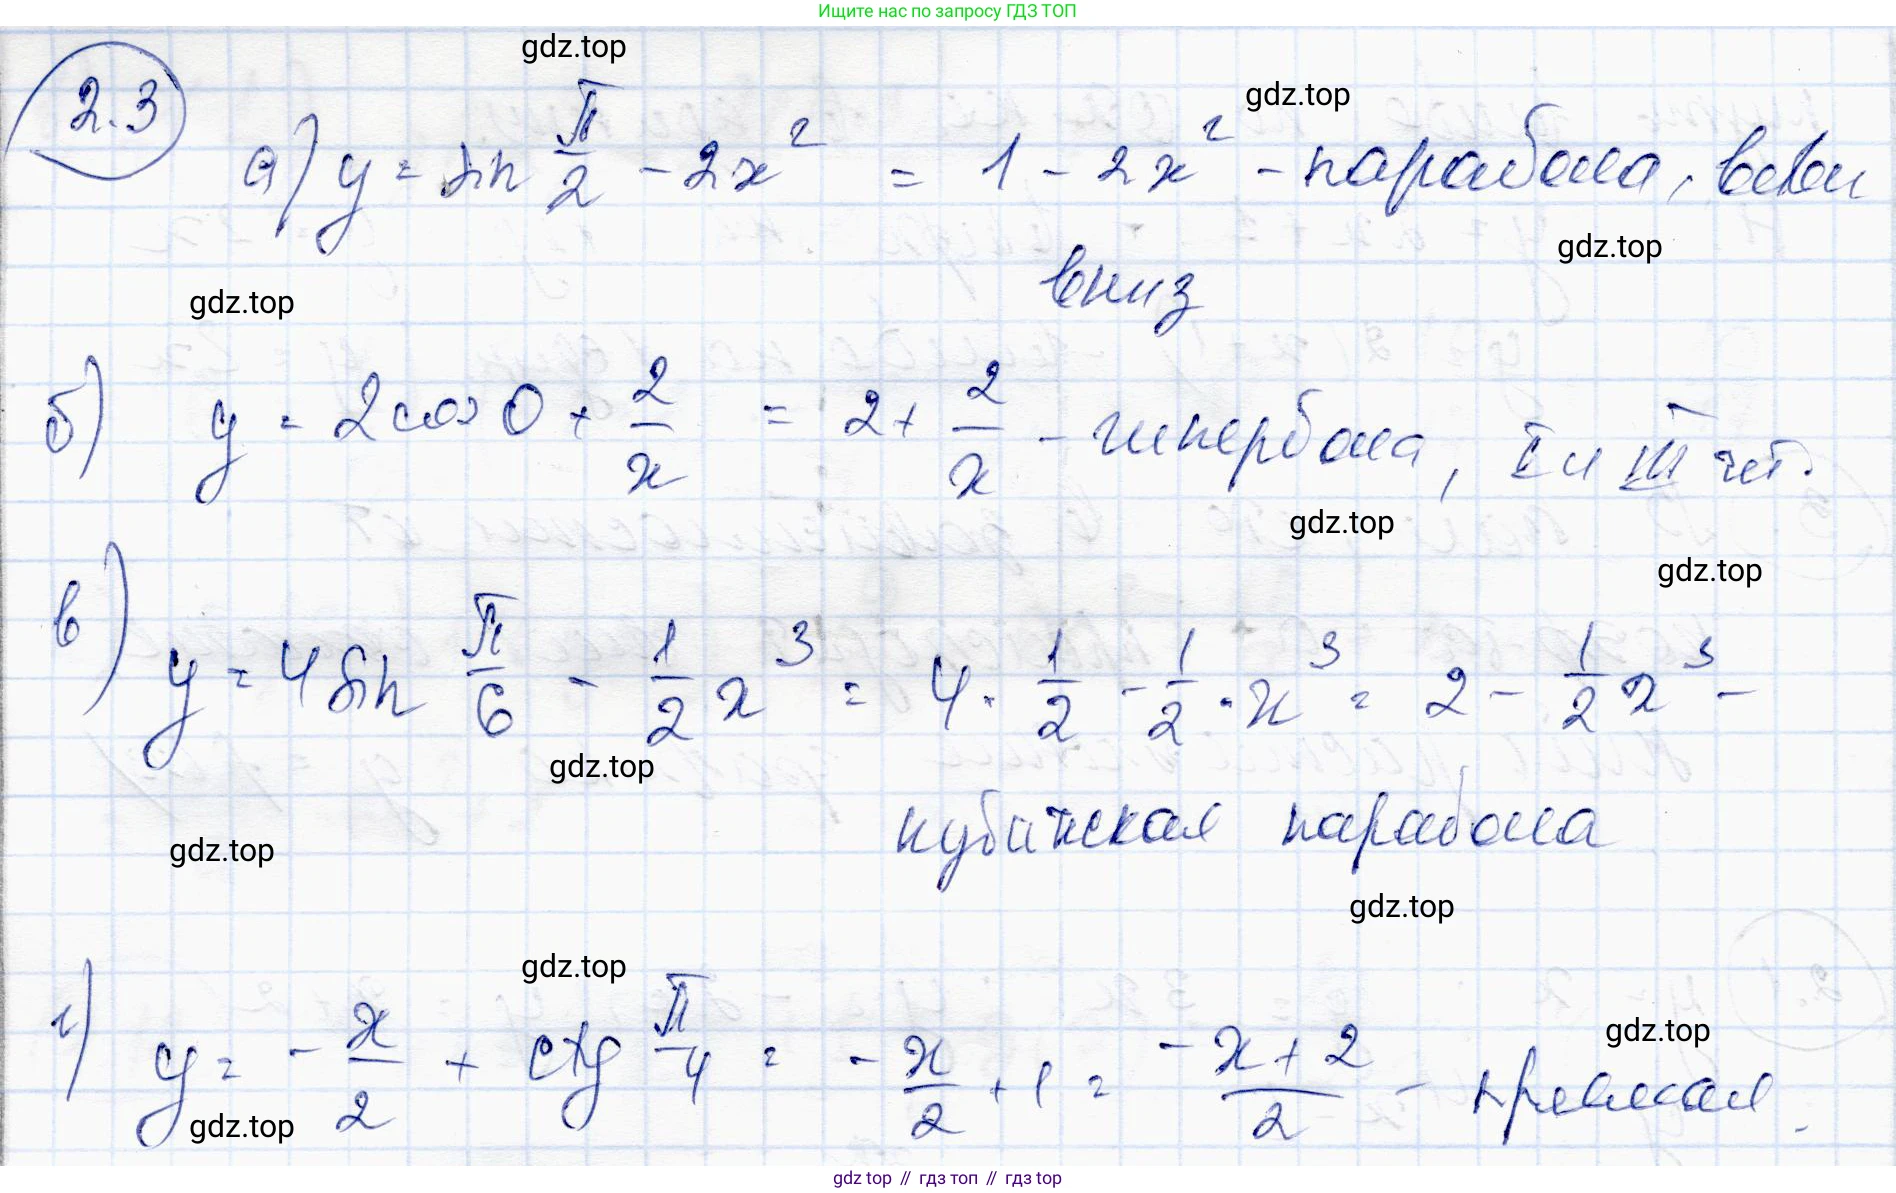 Ищите нас по запросу ГДЗ ТОП
gdz.top
2.3
gdz.top
а) y = sin π/2 - 2x² = 1 - 2x² - парабола, ветви
gdz.top
вниз
gdz.top
б) y = 2cos 0 + 2/x = 2 + 2/x - гипербола, I и III чет.
gdz.top
gdz.top
в) y = 4 sin π/6 - 1/2 x³ = 4 · 1/2 - 1/2 · x³ = 2 - 1/2 x³ -
gdz.top
кубическая парабола
gdz.top
gdz.top
gdz.top
г) y = - x/2 + ctg π/4 = - x/2 + 1 = -x+2/2 - прямая.
gdz.top
gdz.top
gdz top // гдз топ // гдз top